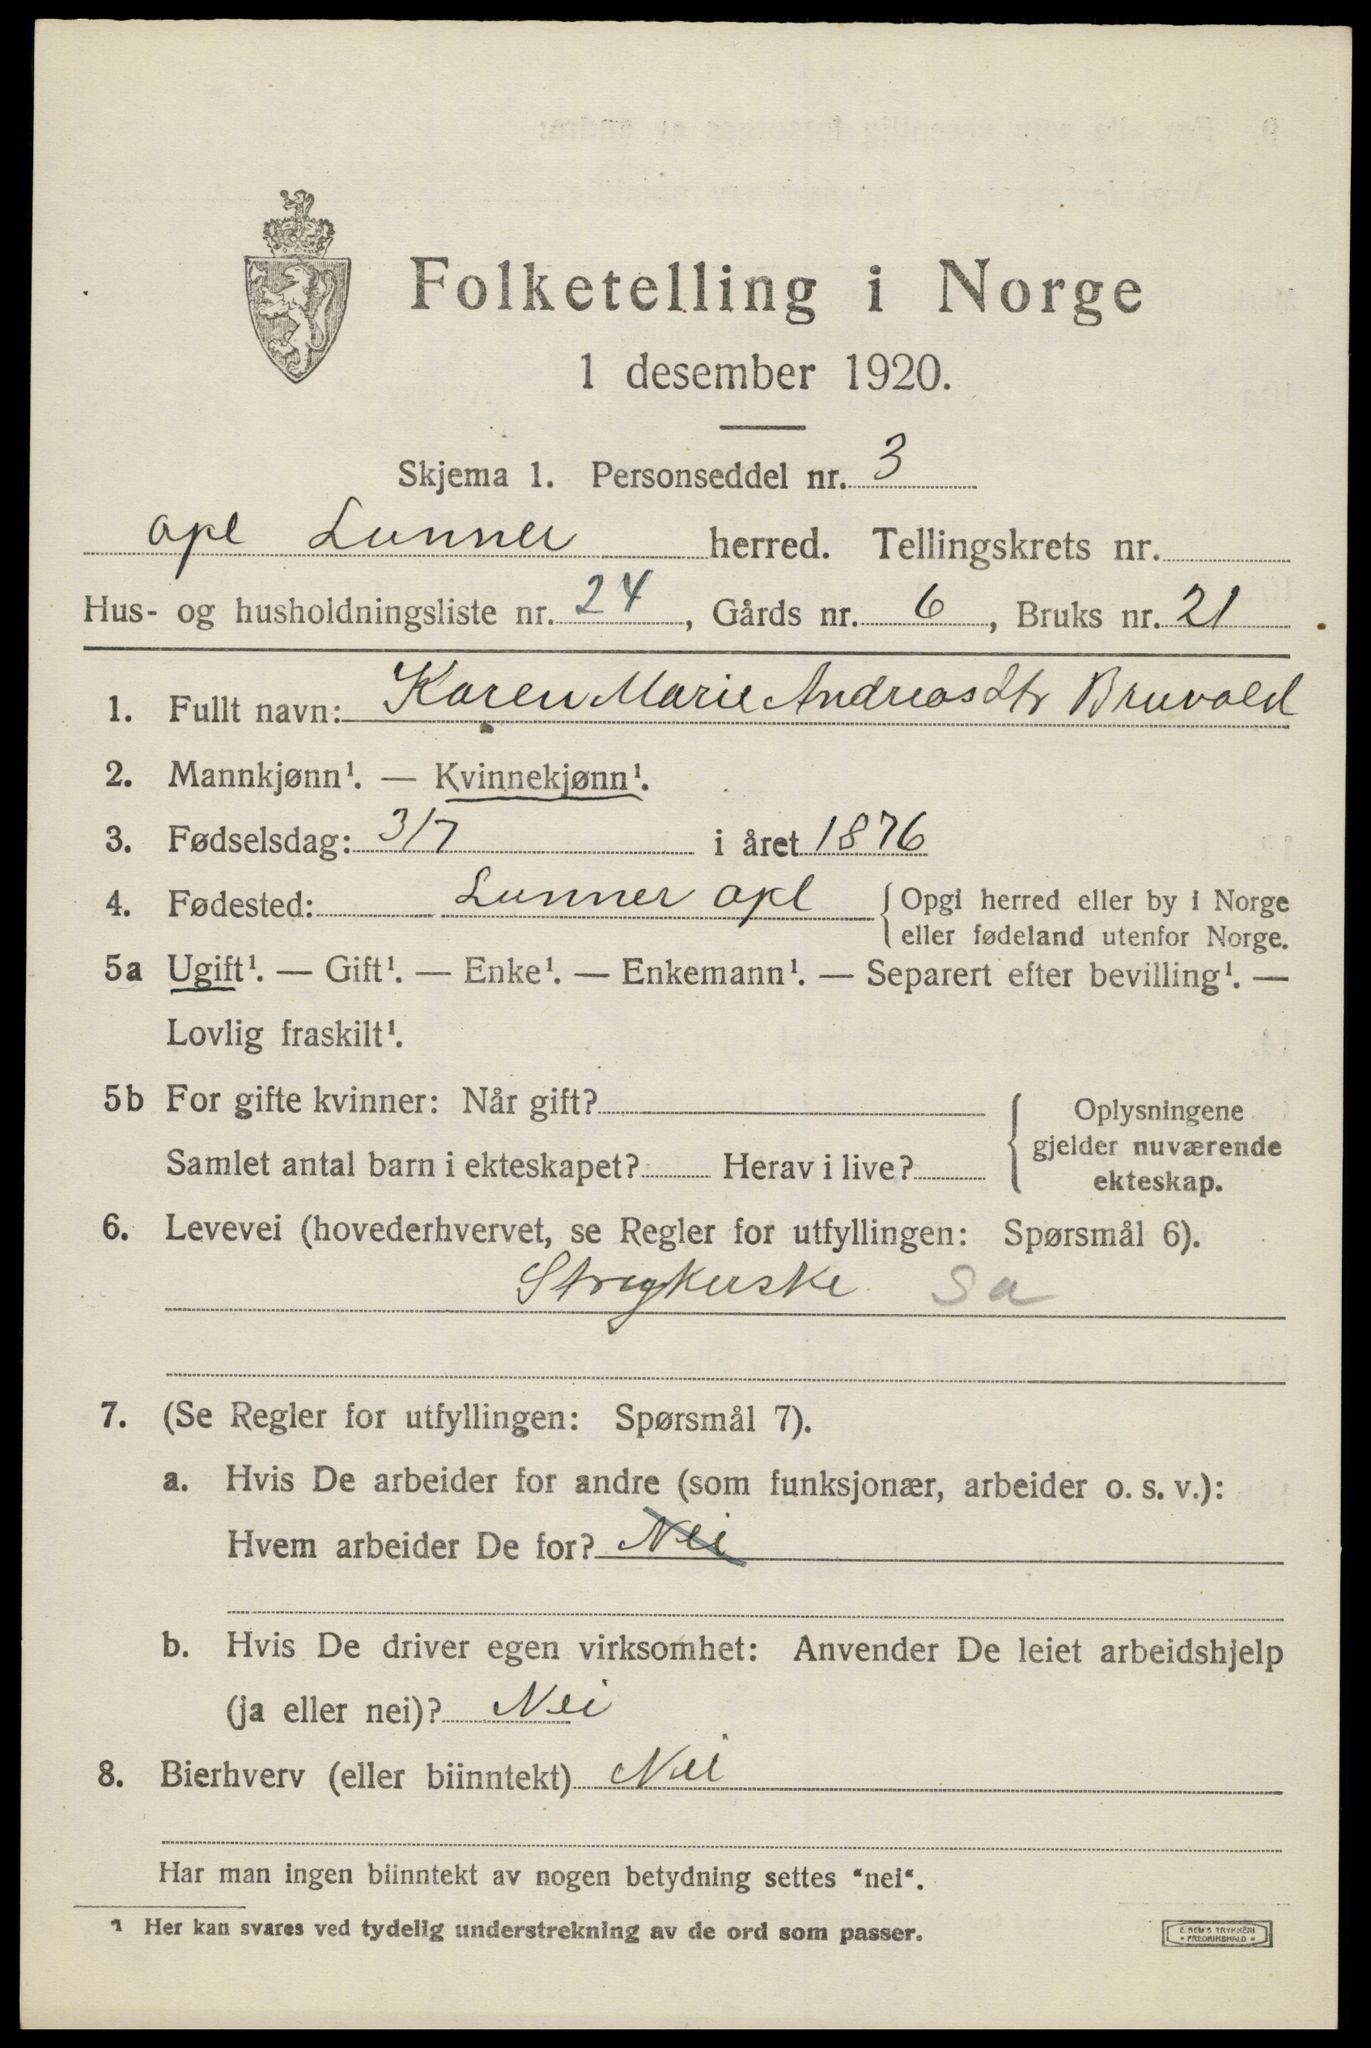 Folketelling i Norge
1 desember 1920.
Skjema 1. Personseddel nr. 3
opl Lunner herred. Tellingskrets nr.
Hus- og husholdningsliste nr. 24, Gårds nr. 6, Bruks nr. 21
1. Fullt navn: Karen Marie Andreasdtr Bruvold
2. Mannkjønn¹. — Kvinnekjønn¹.
3. Fødselsdag: 3/7 i året 1876
4. Fødested: Lunner opl {Opgi herred eller by i Norge
eller fødeland utenfor Norge.
5a Ugift¹. — Gift¹. — Enke¹. — Enkemann¹. — Separert efter bevilling¹. —
Lovlig fraskilt¹.
5b For gifte kvinner: Når gift?
Samlet antal barn i ekteskapet? Herav i live?
{Oplysningene
gjelder nuværende
ekteskap.
6. Levevei (hovederhvervet, se Regler for utfyllingen: Spørsmål 6).
Strykerske Sa
7. (Se Regler for utfyllingen: Spørsmål 7).
a. Hvis De arbeider for andre (som funksjonær, arbeider o. s. v.):
Hvem arbeider De for? Nei
b. Hvis De driver egen virksomhet: Anvender De leiet arbeidshjelp
(ja eller nei)? Nei
8. Bierhverv (eller biinntekt) Nei
Har man ingen biinntekt av nogen betydning settes "nei".
¹ Her kan svares ved tydelig understrekning av de ord som passer.
E. SEM'S TRYKKERI
FREDRIKSHALD